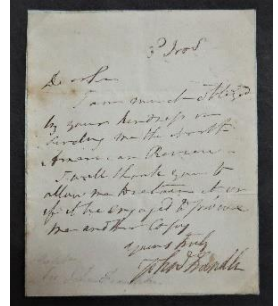 Dear Sir
I am much obliged
by your kindness in
sending me the North
American Review -
I will thank you to
allow me to retain it or
if it be engaged to procure
me another Copy
Yours truly